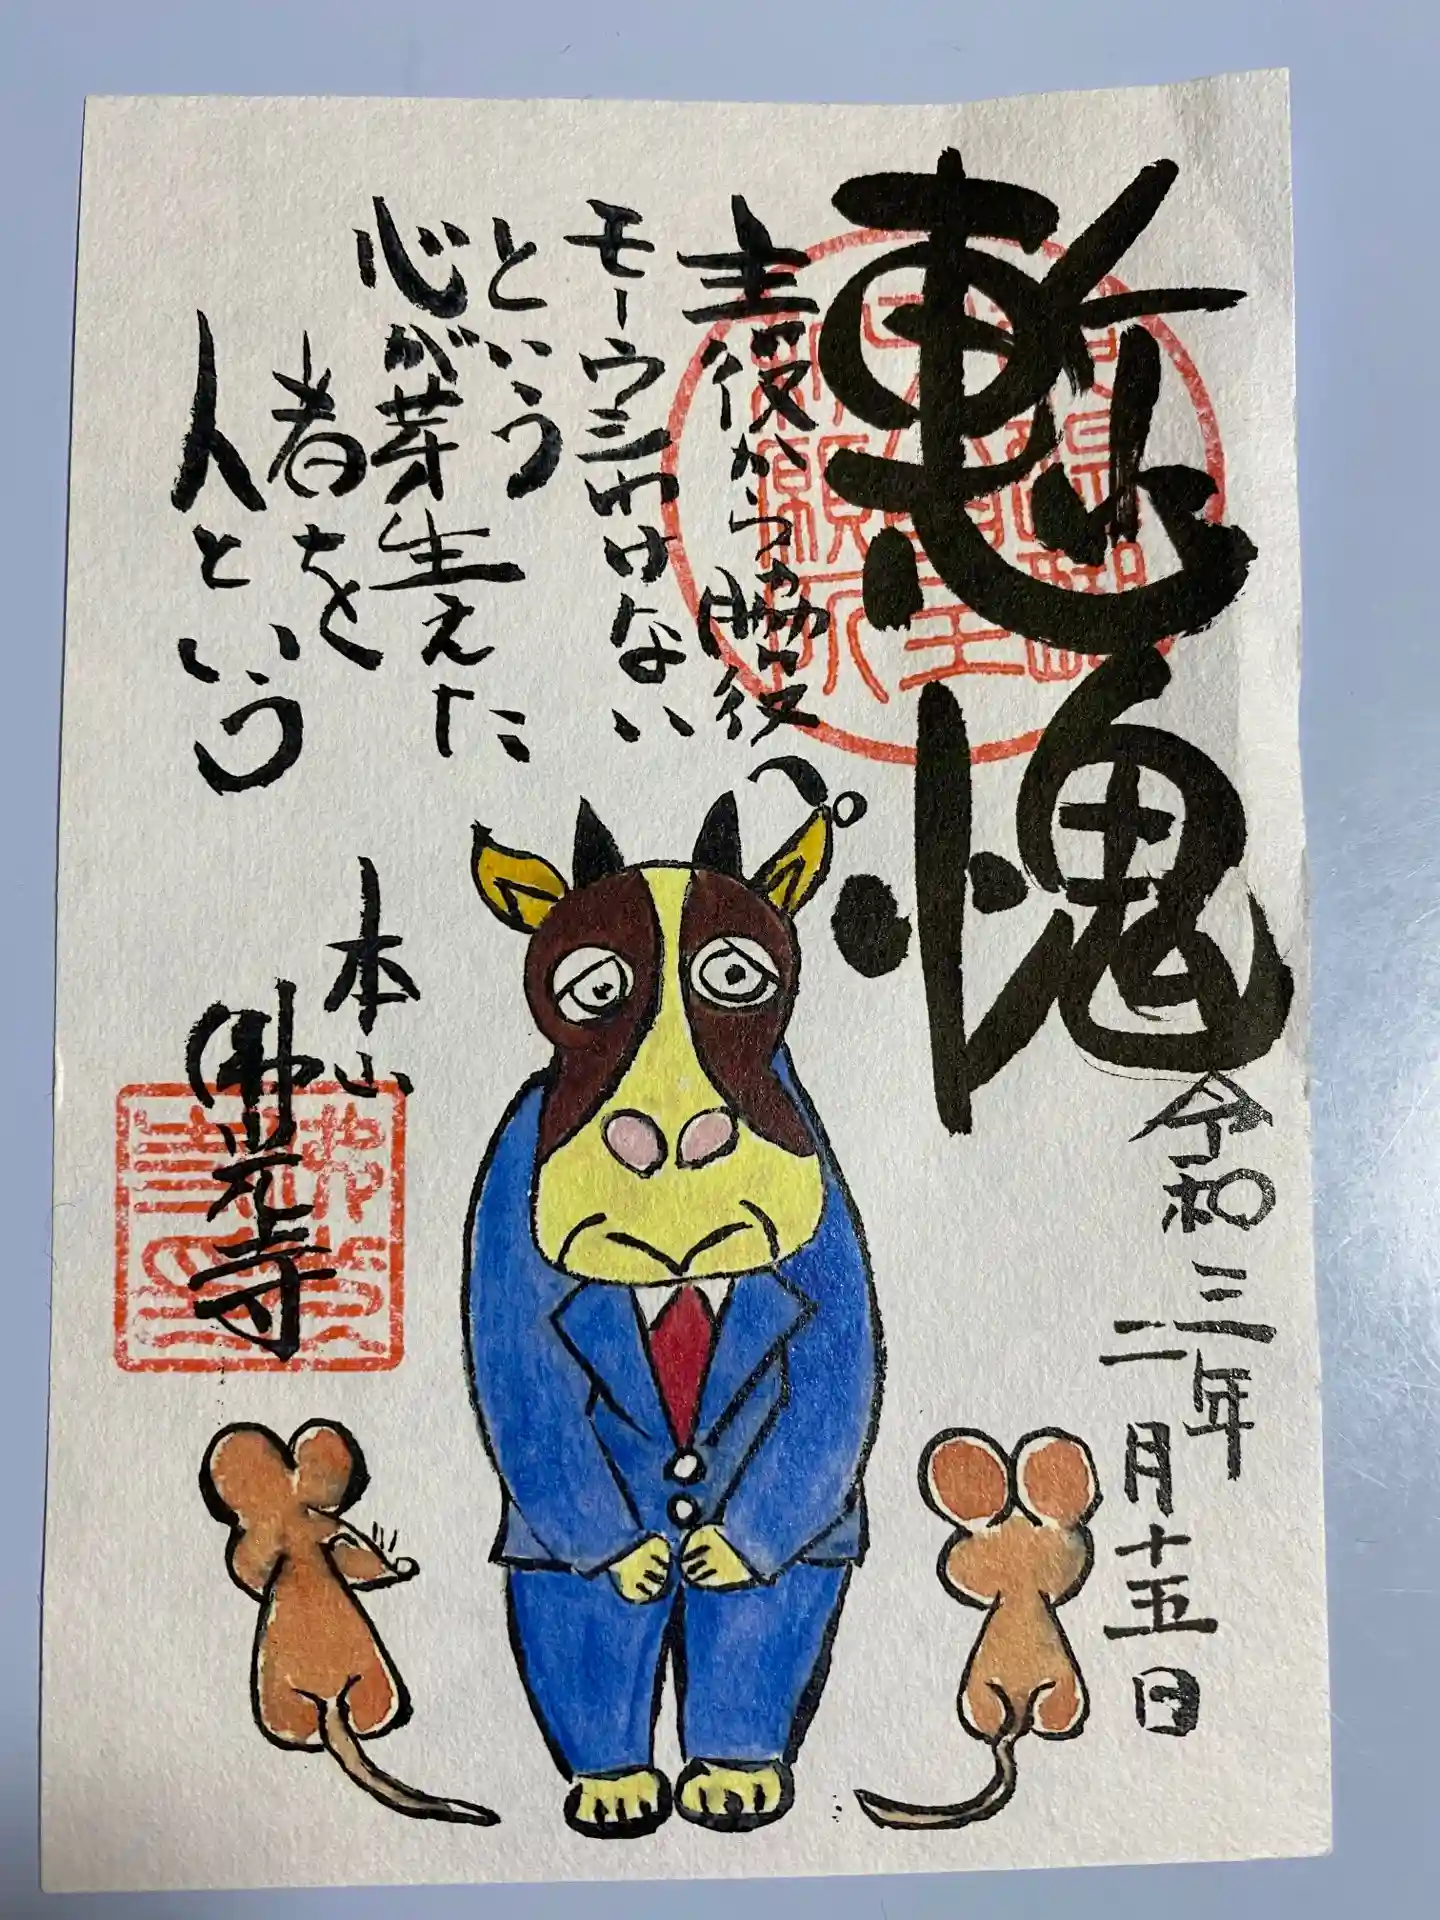 慙愧
主役からの脇役へ。
モーウシわけない
という
心が芽生えた
者を
人という
令和三年
二月十五日
本山
佛光寺